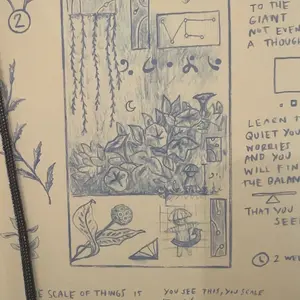 2
TO THE
GIANT
NOT EVEN
A THOUGH
LEARN T
QUIET YOU
WORRIES
AND YOU
WILL FIN
THE BALAN
THAT YOU
SEE
2 WE
E SCALE OF THINGS IT
YOU SEE THIS, YOU SCALE